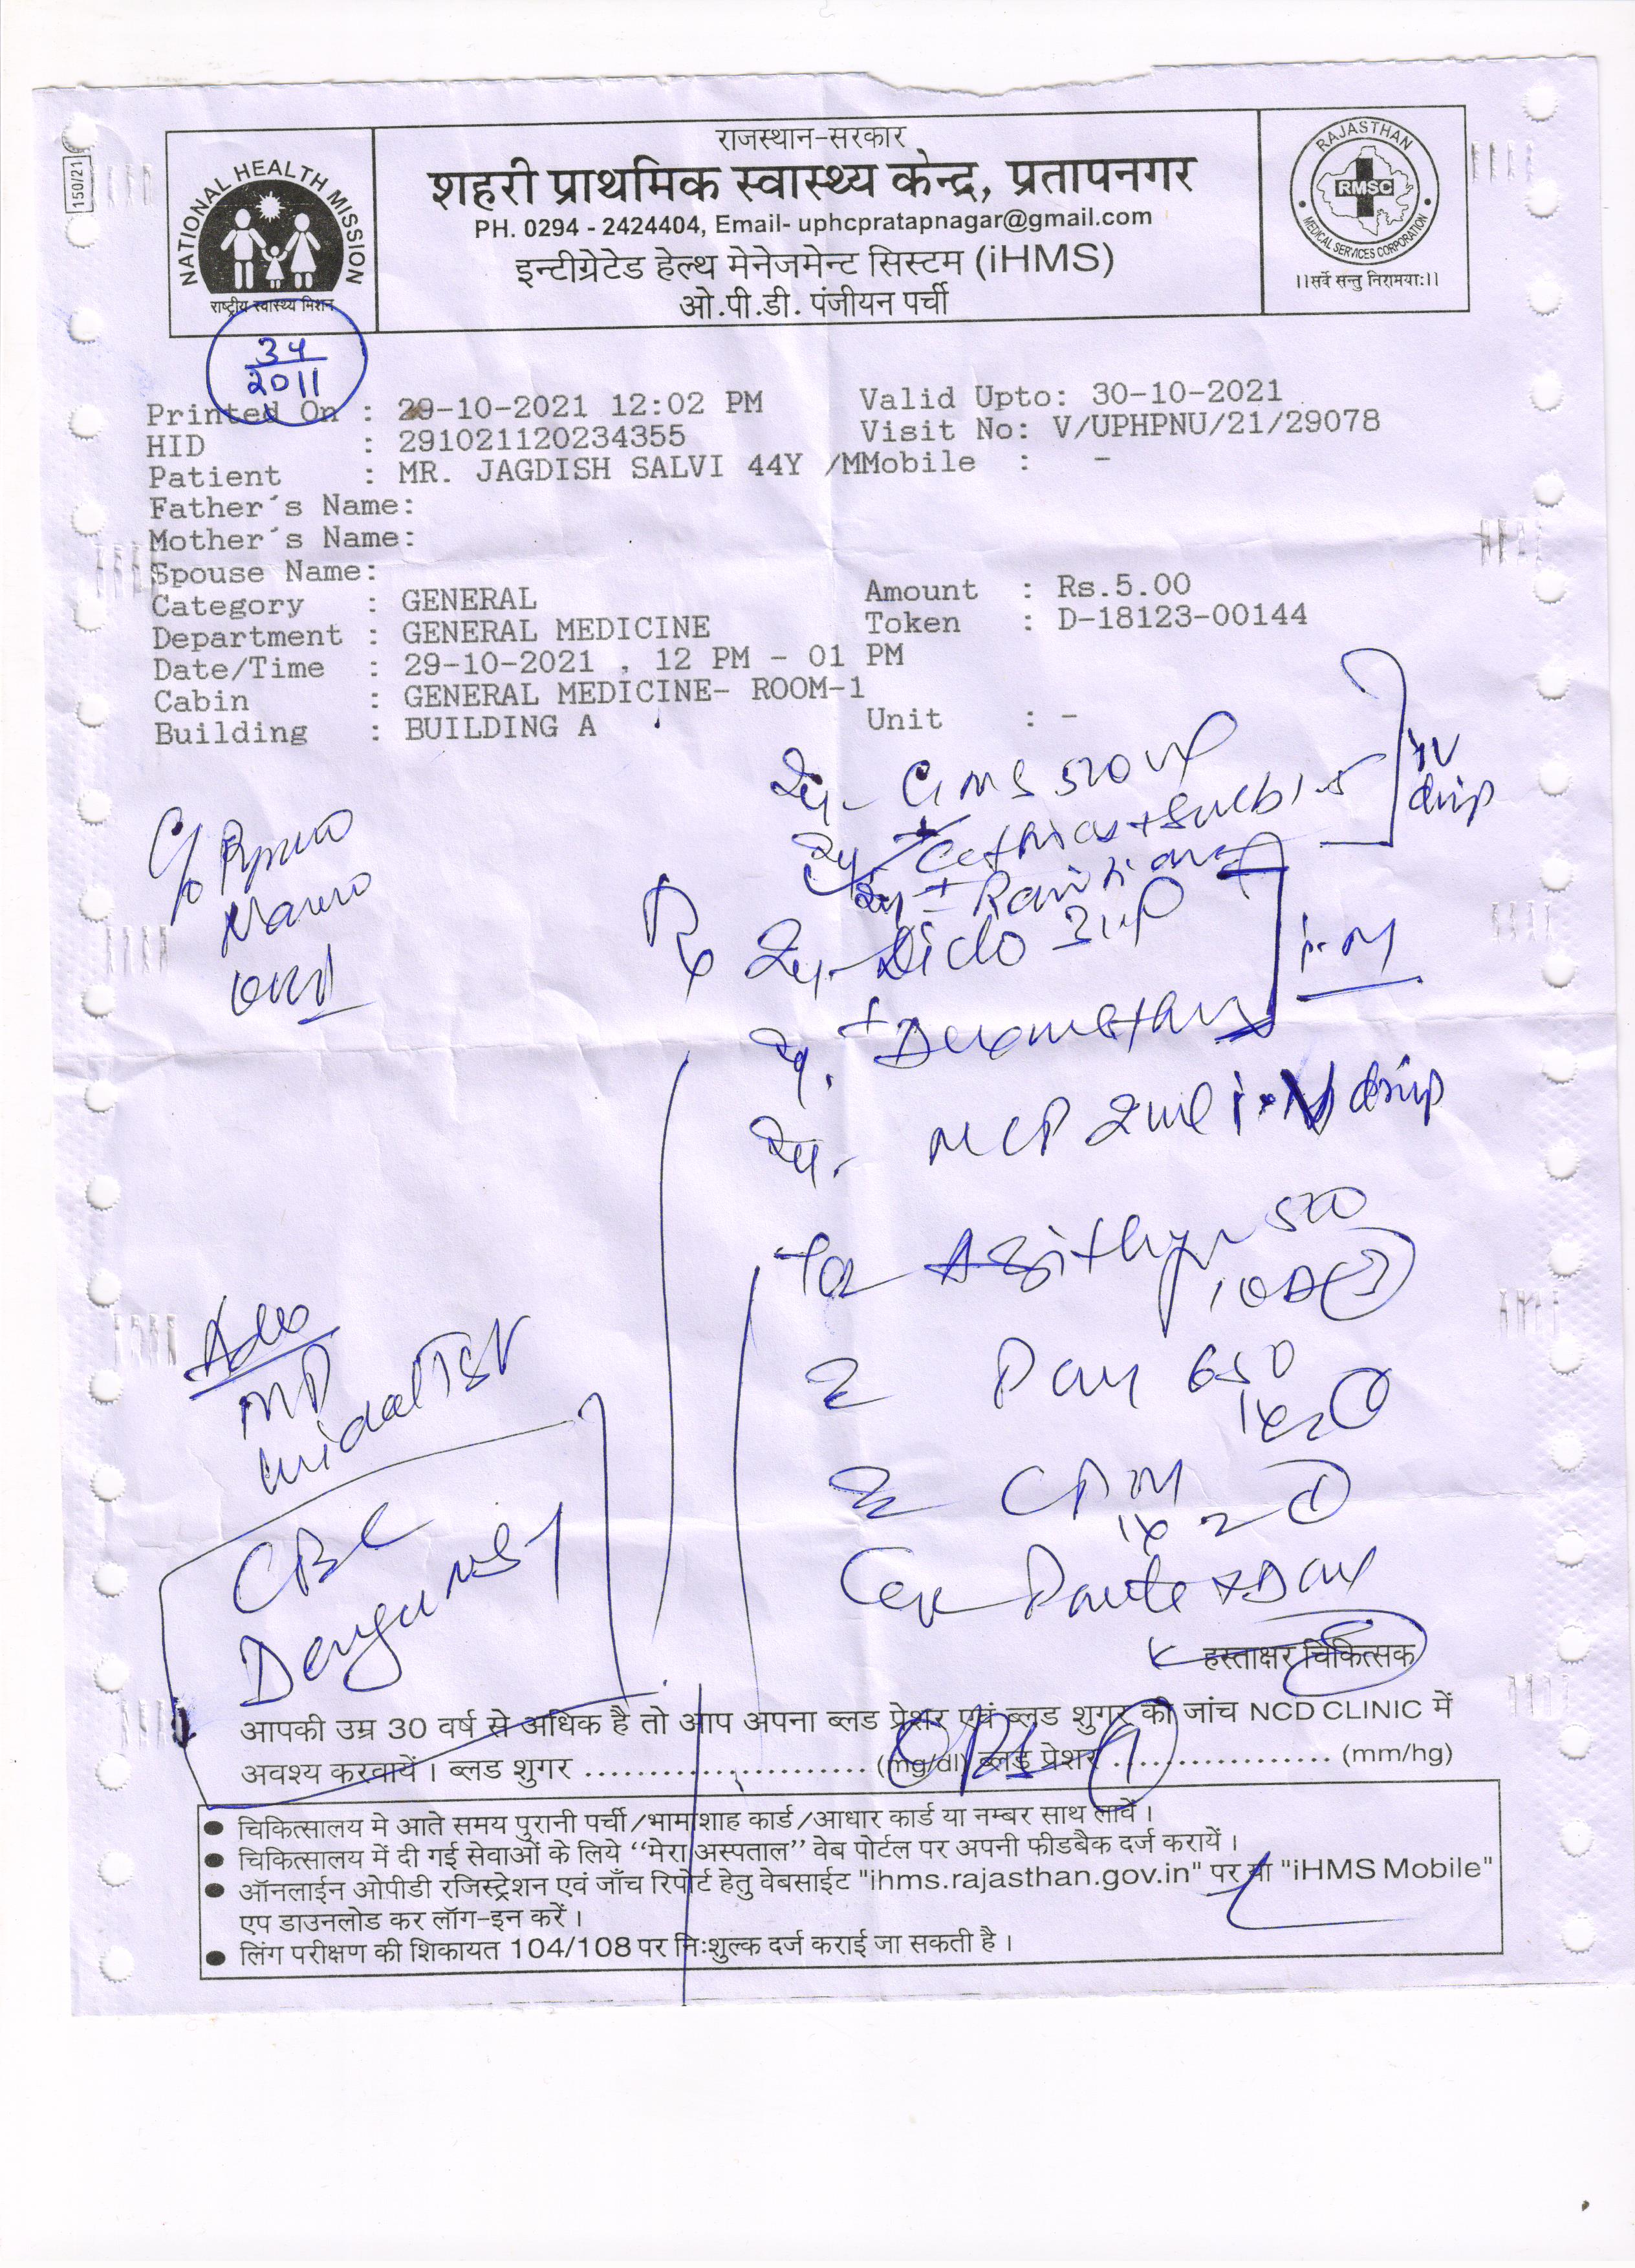 150/21
NATIONAL HEALTH MISSION
राष्ट्रीय स्वास्थ्य मिशन
राजस्थान-सरकार
शहरी प्राथमिक स्वास्थ्य केन्द्र, प्रतापनगर
PH. 0294 - 2424404, Email- uphcpratapnagar@gmail.com
इन्टीग्रेटेड हेल्थ मेनेजमेन्ट सिस्टम (iHMS)
ओ.पी.डी. पंजीयन पर्ची
RAJASTHAN
RMSC
MEDICAL SERVICES CORPORATION
।।सर्वे सन्तु निरामयाः।।
34
2011
Printed On : 29-10-2021 12:02 PM Valid Upto: 30-10-2021
HID : 291021120234355 Visit No: V/UPHPNU/21/29078
Patient : MR. JAGDISH SALVI 44Y /MMobile : -
Father´s Name:
Mother´s Name:
Spouse Name:
Category : GENERAL Amount : Rs.5.00
Department : GENERAL MEDICINE Token : D-18123-00144
Date/Time : 29-10-2021 , 12 PM - 01 PM
Cabin : GENERAL MEDICINE- ROOM-1
Building : BUILDING A Unit : -
IV
drip
C/o
Rx
Diclo 3ml
i-M
MCP 2ml i.v drip
500
650
CPM
1x2
Adv
MP
widal TSN
CBC
Dengu NS1
हस्ताक्षर चिकित्सक
आपकी उम्र 30 वर्ष से अधिक है तो आप अपना ब्लड प्रेशर एवं ब्लड शुगर की जांच NCD CLINIC में
अवश्य करवायें। ब्लड शुगर ...................... (mg/dl) ब्लड प्रेशर ................. (mm/hg)
● चिकित्सालय मे आते समय पुरानी पर्ची/भामाशाह कार्ड/आधार कार्ड या नम्बर साथ लावें।
● चिकित्सालय में दी गई सेवाओं के लिये ‘‘मेरा अस्पताल’’ वेब पोर्टल पर अपनी फीडबैक दर्ज करायें।
● ऑनलाईन ओपीडी रजिस्ट्रेशन एवं जाँच रिपोर्ट हेतु वेबसाईट "ihms.rajasthan.gov.in" पर या "iHMS Mobile"
एप डाउनलोड कर लॉग-इन करें।
● लिंग परीक्षण की शिकायत 104/108 पर निःशुल्क दर्ज कराई जा सकती है।